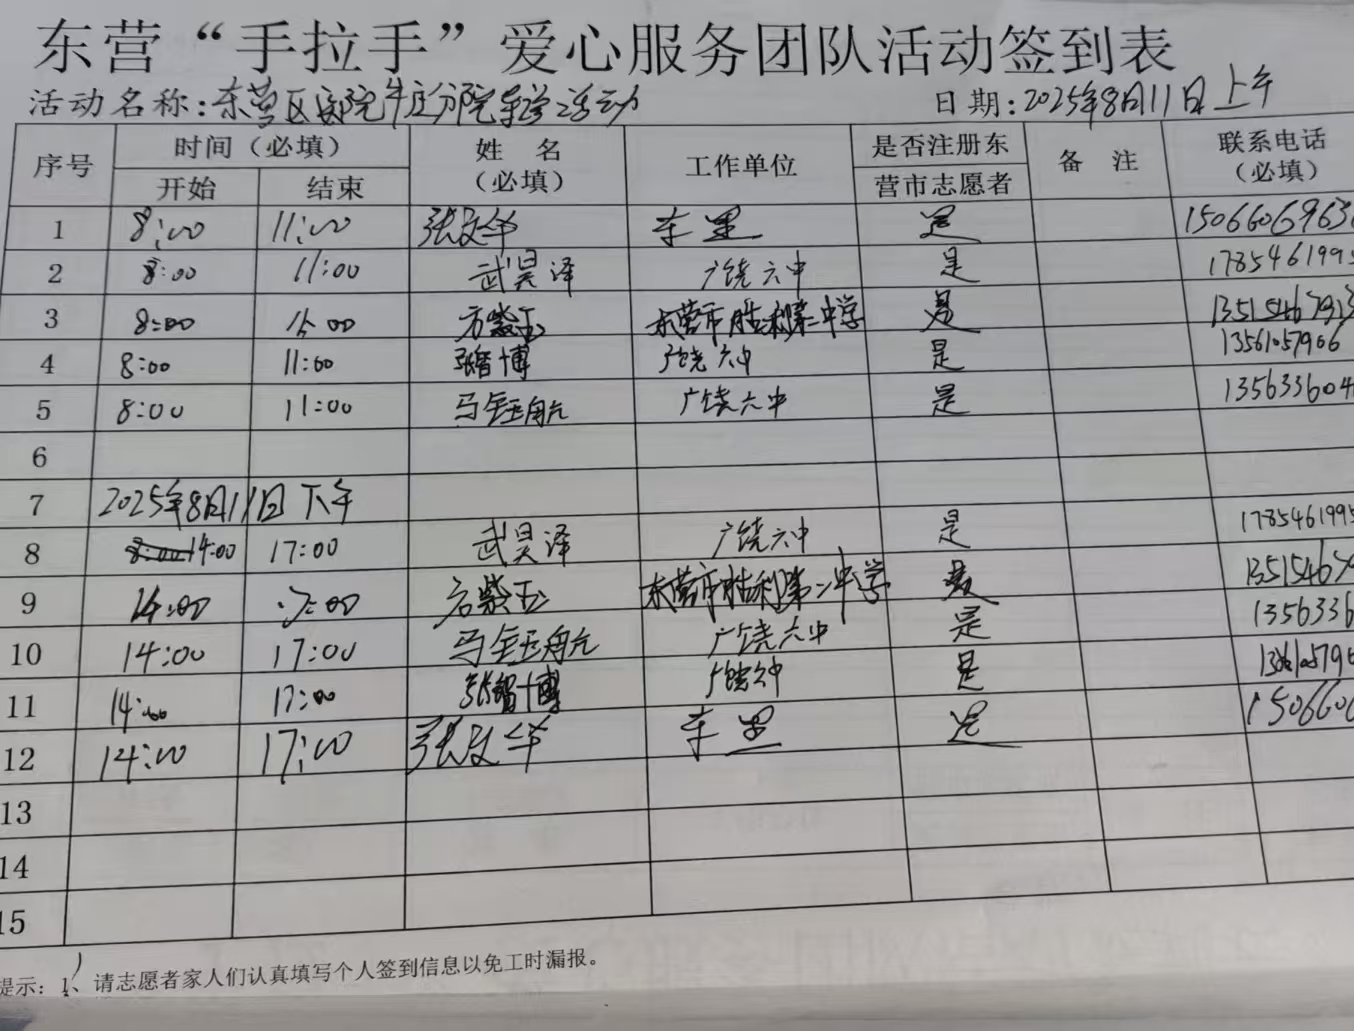 东营“手拉手”爱心服务团队活动签到表
活动名称：东营区医院牛庄分院导诊活动 日期：2025年8月11日上午
序号 时间（必填） 姓 名（必填） 工作单位 是否注册东营市志愿者 备 注 联系电话（必填）
开始 结束
1 8:00 11:00 张文华 是 1506606963
2 8:00 11:00 武昊泽 广饶六中 是 1785461995
3 8:00 11:00 方紫玉 东营市胜利第二中学 是
4 8:00 11:00 张智博 广饶六中 是 13561057906
5 8:00 11:00 马钰航 广饶六中 是 135633604
6
7 2025年8月11日下午
8 14:00 17:00 武昊泽 广饶六中 是 1785461995
9 14:00 17:00 方紫玉 东营市胜利第二中学 是 13515467
10 14:00 17:00 马钰航 广饶六中 是 1356336
11 14:00 17:00 张智博 广饶六中 是
12 14:00 17:00 张文华 是 1506606
13
14
15
提示：1、请志愿者家人们认真填写个人签到信息以免工时漏报。